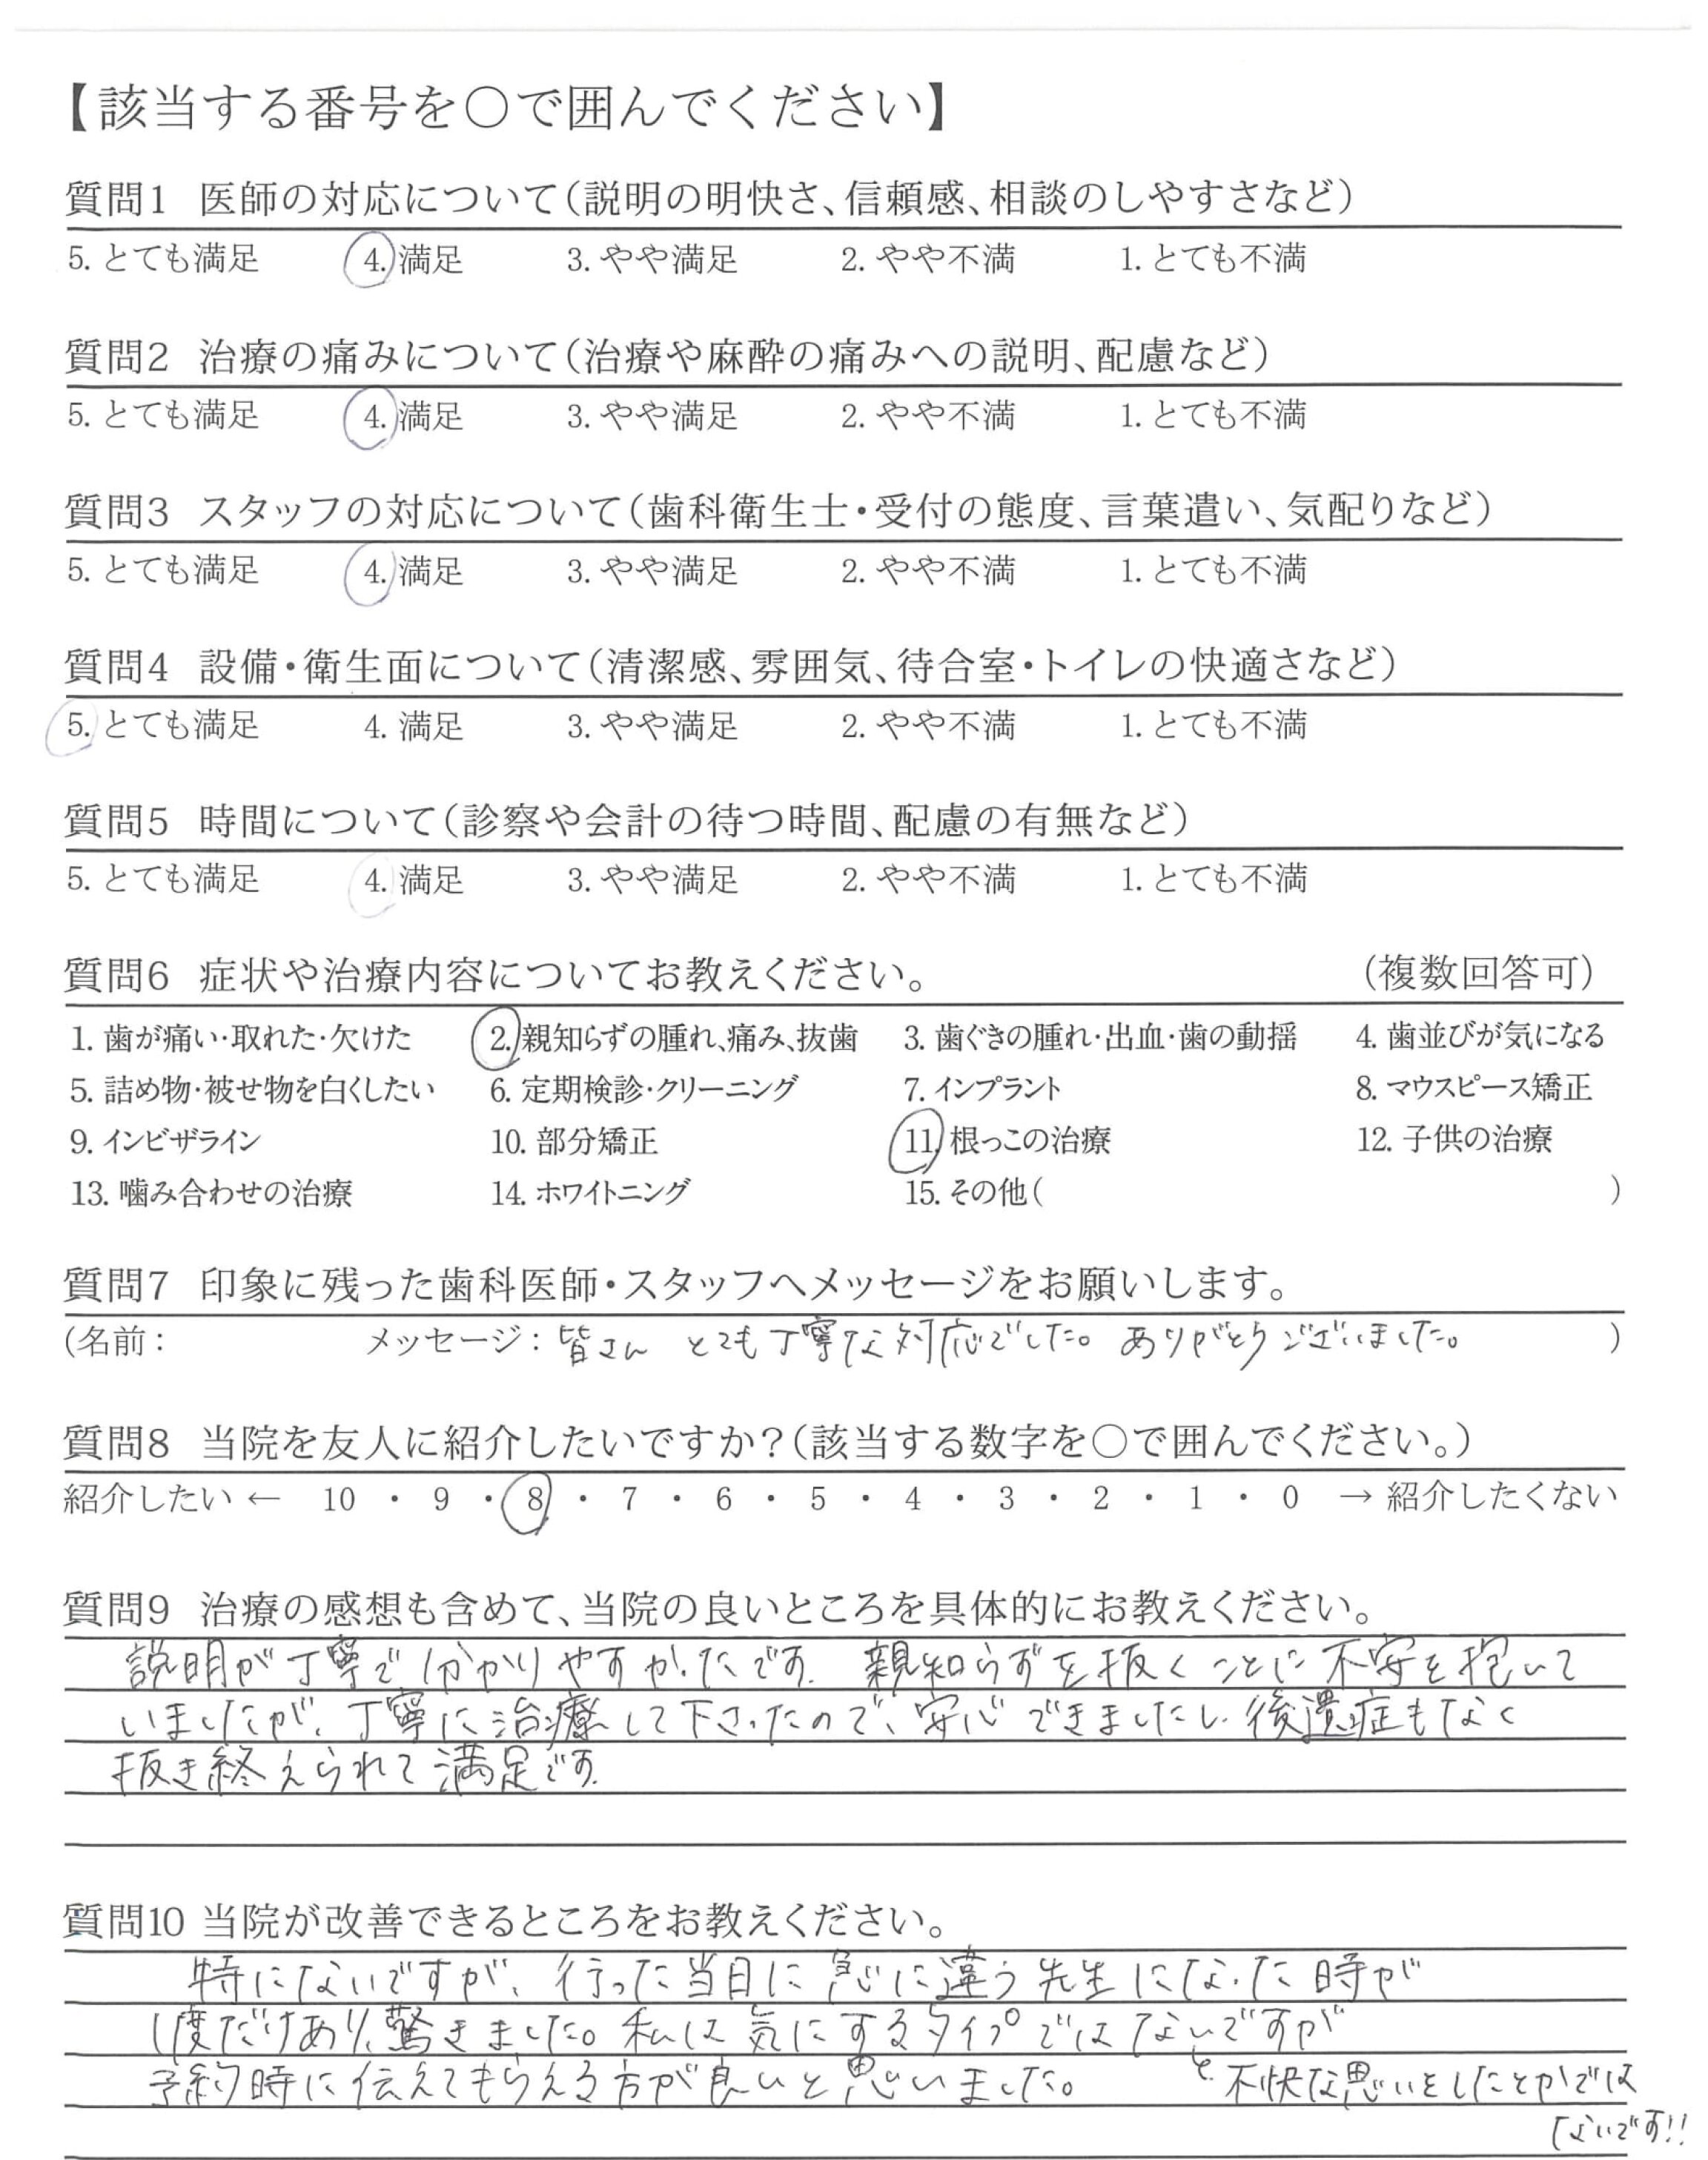 【該当する番号を○で囲んでください】
質問1 医師の対応について(説明の明快さ、信頼感、相談のしやすさなど)
5. とても満足 4. 満足 3. やや満足 2. やや不満 1. とても不満
質問2 治療の痛みについて(治療や麻酔の痛みへの説明、配慮など)
5. とても満足 4. 満足 3. やや満足 2. やや不満 1. とても不満
質問3 スタッフの対応について(歯科衛生士・受付の態度、言葉遣い、気配りなど)
5. とても満足 4. 満足 3. やや満足 2. やや不満 1. とても不満
質問4 設備・衛生面について(清潔感、雰囲気、待合室・トイレの快適さなど)
5. とても満足 4. 満足 3. やや満足 2. やや不満 1. とても不満
質問5 時間について(診察や会計の待つ時間、配慮の有無など)
5. とても満足 4. 満足 3. やや満足 2. やや不満 1. とても不満
質問6 症状や治療内容についてお教えください。 (複数回答可)
1. 歯が痛い・取れた・欠けた 2. 親知らずの腫れ、痛み、抜歯 3. 歯ぐきの腫れ・出血・歯の動揺 4. 歯並びが気になる
5. 詰め物・被せ物を白くしたい 6. 定期検診・クリーニング 7. インプラント 8. マウスピース矯正
9. インビザライン 10. 部分矯正 11. 根っこの治療 12. 子供の治療
13. 噛み合わせの治療 14. ホワイトニング 15. その他( )
質問7 印象に残った歯科医師・スタッフへメッセージをお願いします。
(名前: メッセージ: 皆さん とても丁寧な対応でした。ありがとうございました。 )
質問8 当院を友人に紹介したいですか?(該当する数字を○で囲んでください。)
紹介したい ← 10 ・ 9 ・ 8 ・ 7 ・ 6 ・ 5 ・ 4 ・ 3 ・ 2 ・ 1 ・ 0 → 紹介したくない
質問9 治療の感想も含めて、当院の良いところを具体的にお教えください。
説明が丁寧で分かりやすかったです。親知らずを抜くことに不安を抱いて
いましたが、丁寧に治療して下さったので、安心できましたし、後遺症もなく
抜き終えられて満足です。
質問10 当院が改善できるところをお教えください。
特にないですが、行った当日に急に違う先生になった時が
1度だけあり、驚きました。私は気にするタイプではないですが
予約時に伝えてもらえる方が良いと思いました。 と、不快な思いをしたとかでは
ないです!!